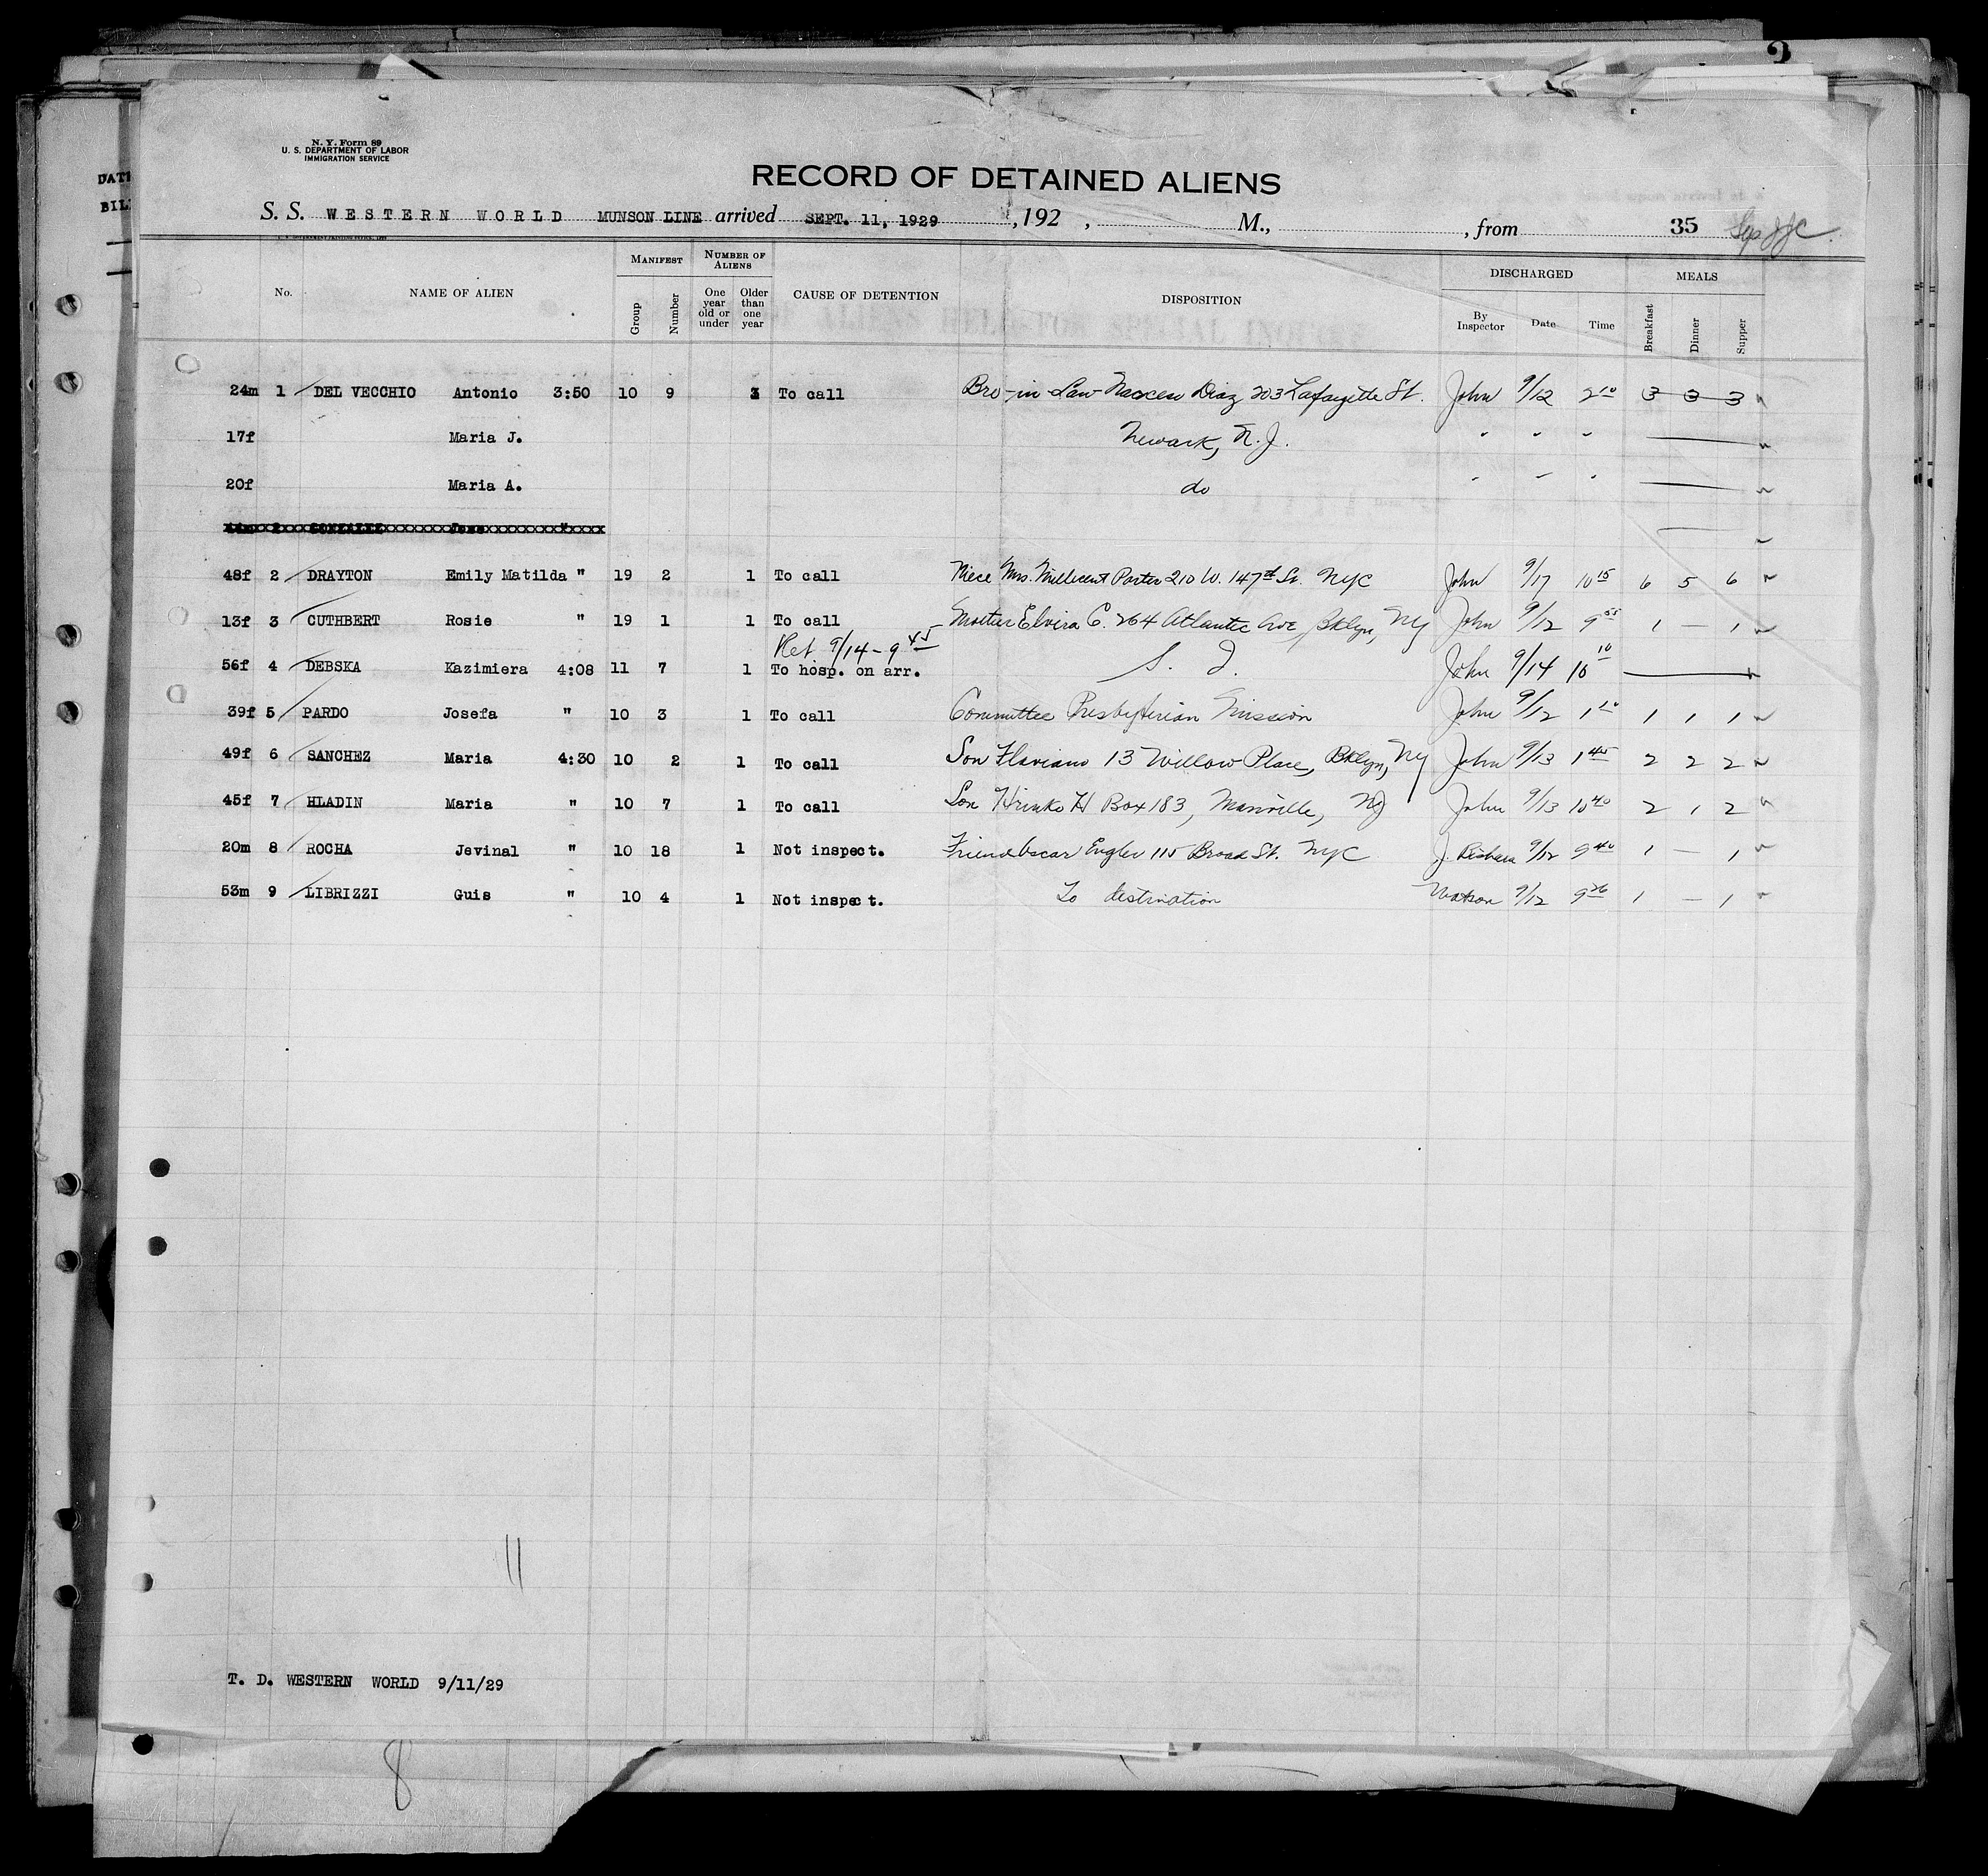 N. Y. Form 89
U. S. DEPARTMENT OF LABOR
IMMIGRATION SERVICE
RECORD OF DETAINED ALIENS
S. S. WESTERN WORLD MUNSON LINE arrived SEPT. 11, 1929 , 192 , M., , from 35
No. NAME OF ALIEN MANIFEST Group Number NUMBER OF ALIENS One year old or under Older than one year CAUSE OF DETENTION DISPOSITION DISCHARGED By Inspector Date Time MEALS Breakfast Dinner Supper
24m 1 DEL VECCHIO Antonio 3:50 10 9 3 To call Bro-in-Law Diaz 203 Lafayette St. John 9/12 2 10 3 3 3
17f Maria J. Newark, N.J. " " "
20f Maria A. do " " "
GONZALEZ Jose "
48f 2 DRAYTON Emily Matilda " 19 2 1 To call Niece Mrs. Millicent Porter 210 W. 147th St. NYC John 9/17 10 15 6 5 6
13f 3 CUTHBERT Rosie " 19 1 1 To call Mother Elvira C. 264 Atlantic Ave, Bklyn, NY John 9/12 9 55 1 — 1
Ret 9/14 - 9 45
56f 4 DEBSKA Kazimiera 4:08 11 7 1 To hosp. on arr. S. I. John 9/14 10 10
39f 5 PARDO Josefa " 10 3 1 To call Committee Presbyterian Mission John 9/12 1 10 1 1 1
49f 6 SANCHEZ Maria 4:30 10 2 1 To call Son Flaviano 13 Willow Place, Bklyn, NY John 9/13 1 45 2 2 2
45f 7 HLADIN Maria " 10 7 1 To call Son Hrinko H Box 183, Manville, NJ John 9/13 10 40 2 1 2
20m 8 ROCHA Jevinal " 10 18 1 Not inspect. Friend Oscar Engler 115 Broad St. NYC J. 9/12 9 40 1 — 1
53m 9 LIBRIZZI Guis " 10 4 1 Not inspect. To destination Watson 9/12 9 26 1 — 1
11
T. D. WESTERN WORLD 9/11/29
8